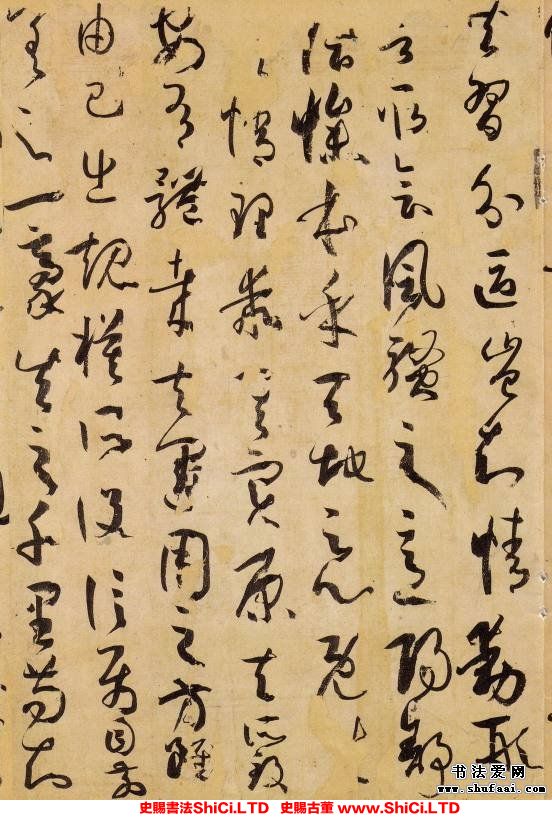 共習分區豈知情動形
言取會風騷之意陽舒
陰慘本乎天地之心既
情理乖其實原夫所致
安有體哉夫運用之方雖
由己出規模所設信屬目前
差之一豪失之千里苟知
书法爱网
www.shufaai.com
史賜書法ShiCi.LTD 史賜古董 www.ShiCi.LTD